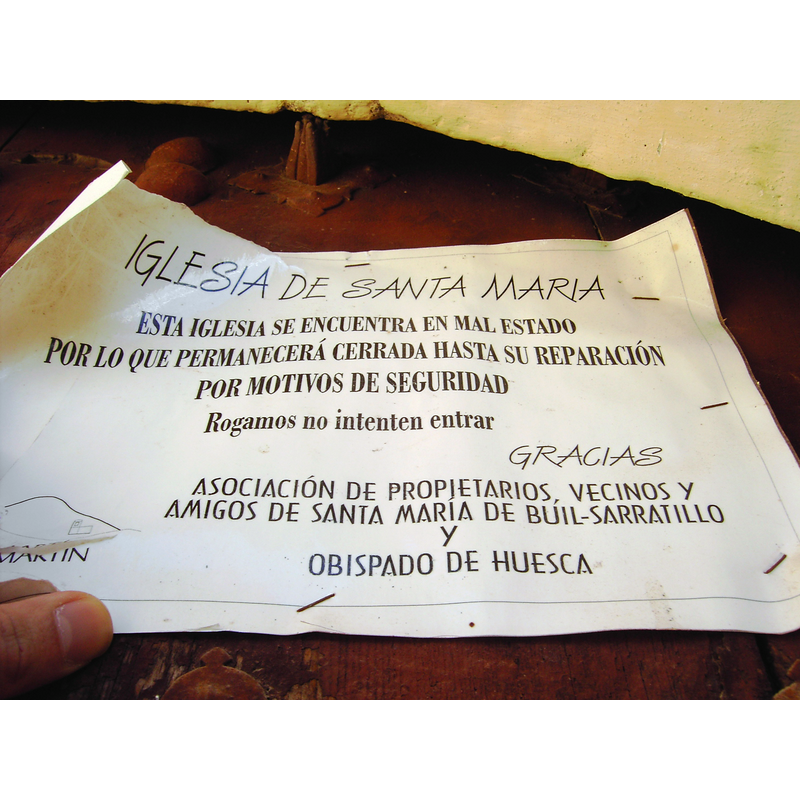 IGLESIA DE SANTA MARIA
ESTA IGLESIA SE ENCUENTRA EN MAL ESTADO
POR LO QUE PERMANECERÁ CERRADA HASTA SU REPARACIÓN
POR MOTIVOS DE SEGURIDAD
Rogamos no intenten entrar
GRACIAS
ASOCIACIÓN DE PROPIETARIOS, VECINOS Y
AMIGOS DE SANTA MARÍA DE BÚIL-SARRATILLO
Y
OBISPADO DE HUESCA
MARTIN